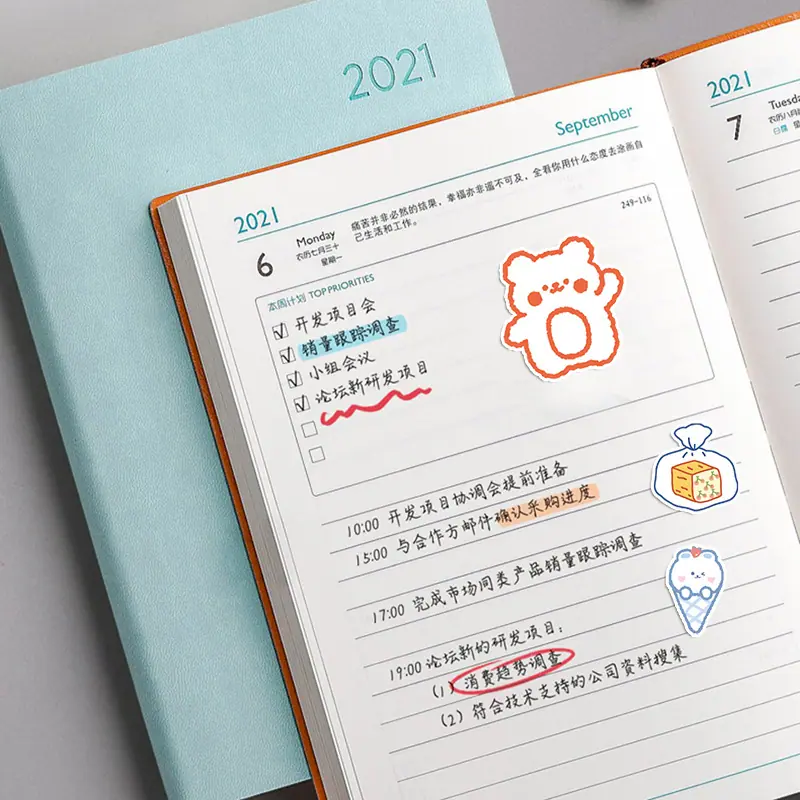 2021
September
2021
6
Monday
农历七月三十
星期一
痛苦并非必然的结果，幸福亦非遥不可及，全看你用什么态度去涂画自
己生活和工作。
249-116
本周计划 TOP PRIORITIES
开发项目会
销量跟踪调查
小组会议
论坛新研发项目
10:00 开发项目协调会提前准备
15:00 与合作方邮件确认采购进度
17:00 完成市场同类产品销量跟踪调查
19:00 论坛新的研发项目：
(1) 消费趋势调查
(2) 符合技术支持的公司资料搜集
2021
7
白露